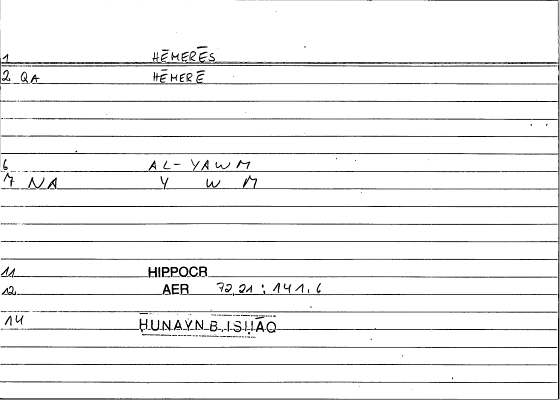 1 HĒMERĒS
2 QA HĒMERĒ
6 AL-YAWM
7 NA Y W M
11 HIPPOCR
12 AER 72,21 : 141,6
14 ḤUNAYN B. ISḤĀQ